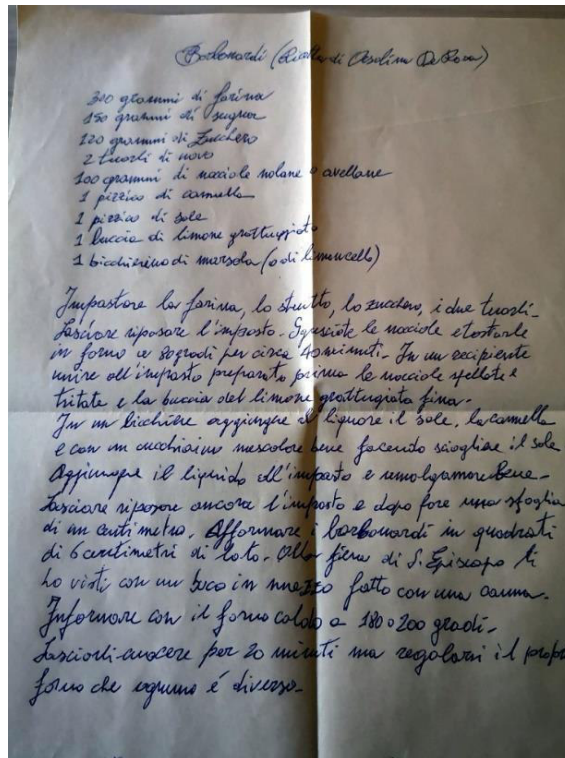 Borbonardi (Ricetta di Asolina De Rosa)
300 grammi di farina
150 grammi di sugna
120 grammi di Zucchero
2 tuorli di uovo
100 grammi di nocciole nolane o avellane
1 pizzico di cannella
1 pizzico di sale
1 buccia di limone grattuggiato
1 bicchierino di marsala (o di limuncello)
Impastare la farina, lo strutto, lo zucchero, i due tuorli.
Lasciare riposare l'impasto. Sgusciate le nocciole e tostarle
in forno a 80 gradi per circa 40 minuti. In un recipiente
unire all'impasto preparato prima le nocciole spellate e
tritate e la buccia del limone grattugiata fina.
In un bicchiere aggiunghe il liquore il sale, la cannella
e con un cucchiaino mescolare bene facendo sciogliere il sale
Aggiungere il liquido all'impasto e remolgamare Bene.
Lasciare riposare ancora l'impasto e dopo fare una sfoglia
di un centimetro. Afformare i borbonardi in quadrati
di 6 centimetri di lato. Alla fiera di S. Episcopo li
ho visti con un buco in mezzo fatto con una canna.
Infornare con il forno caldo a 180 o 200 gradi.
Lasciarli cuocere per 20 minuti ma regolarsi il propr
forno che ognuno é diverso.